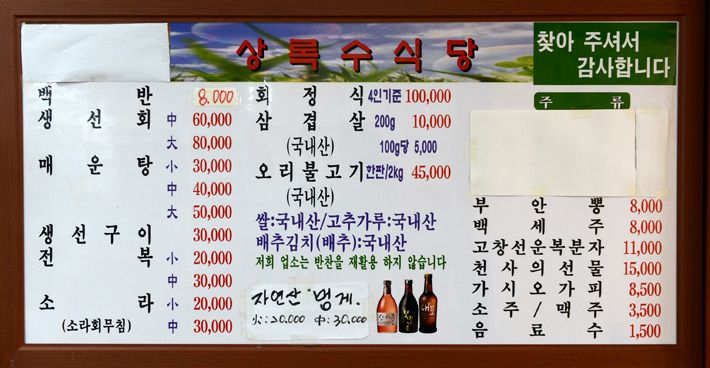 상록수식당
찾아 주셔서
감사합니다
백반 8.000
생선회 中 60,000
大 80,000
매운탕 小 30,000
中 40,000
大 50,000
생선구이 30,000
전복 小 20,000
中 30,000
소라 小 20,000
(소라회무침) 中 30,000
회정식 4인기준 100,000
삼겹살 200g 10,000
(국내산) 100g당 5,000
오리불고기 한판/2kg 45,000
(국내산)
쌀:국내산/고추가루:국내산
배추김치(배추):국내산
저희 업소는 반찬을 재활용 하지 않습니다
자연산 멍게.
小:20.000 中:30,000
주류
부안뽕 8,000
백세주 8,000
고창선운복분자 11,000
천사의선물 15,000
가시오가피 8,500
소주/맥주 3,500
음료수 1,500